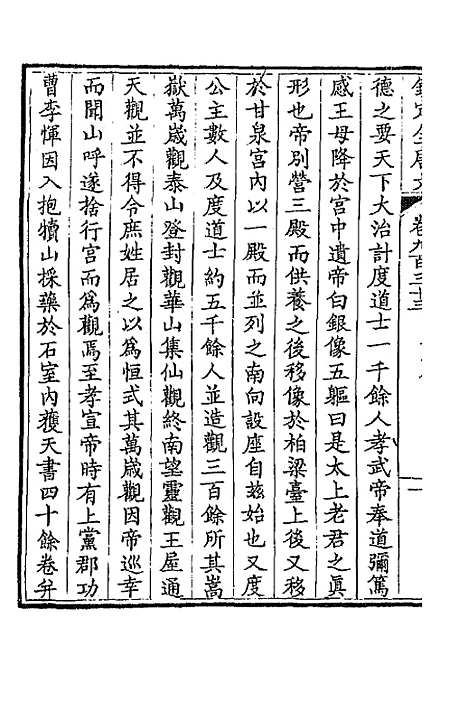 欽定全唐文 卷九百三十三
德之要天下大治計度道士一千餘人孝武帝奉道彌篤
感王母降於宮中遺帝白銀像五軀曰是太上老君之眞
形也帝別營三殿而供養之後移像於柏梁臺上後又移
於甘泉宮內以一殿而並列之南向設座自茲始也又度
公主數人及度道士約五千餘人並造觀三百餘所其嵩
嶽萬歲觀泰山登封觀華山集仙觀終南望靈觀王屋通
天觀並不得令庶姓居之以爲恒式其萬歲觀因帝巡幸
而聞山呼遂捨行宮而爲觀焉至孝宣帝時有上黨郡功
曹李惲因入抱犢山採藥於石室內獲天書四十餘卷并